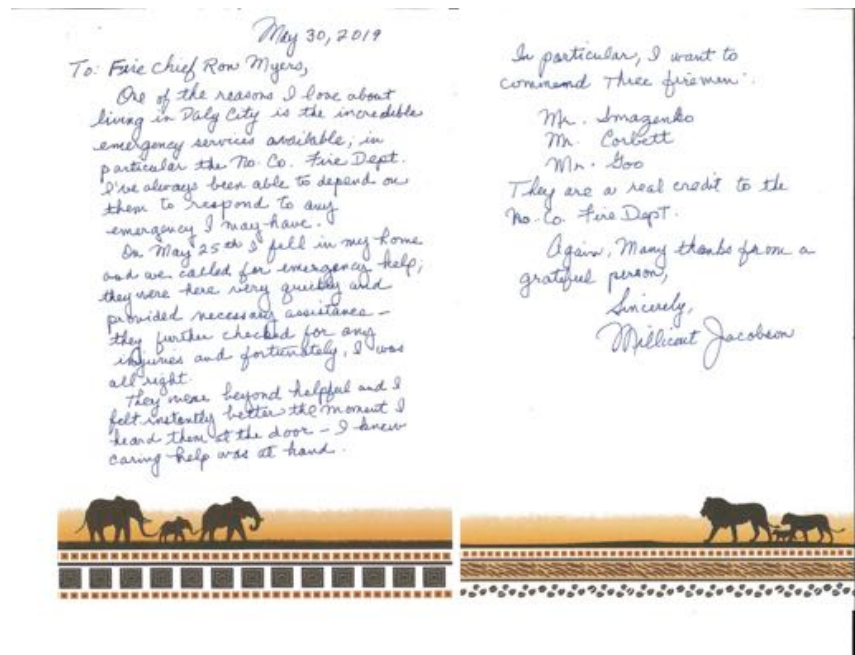 May 30, 2019
To: Fire Chief Ron Myers,
One of the reasons I love about
living in Daly City is the incredible
emergency services available; in
particular the No. Co. Fire Dept.
I've always been able to depend on
them to respond to any
emergency I may have.
On May 25th I fell in my home
and we called for emergency help;
they were here very quickly and
provided necessary assistance –
they further checked for any
injuries and fortunately, I was
all right.
They were beyond helpful and I
felt instantly better the moment I
heard them at the door – I knew
caring help was at hand.
In particular, I want to
commend three firemen:
Mr. Smazenko
Mr. Corbett
Mr. Goo
They are a real credit to the
No. Co. Fire Dept.
Again, Many thanks from a
grateful person,
Sincerely,
Millicent Jacobson